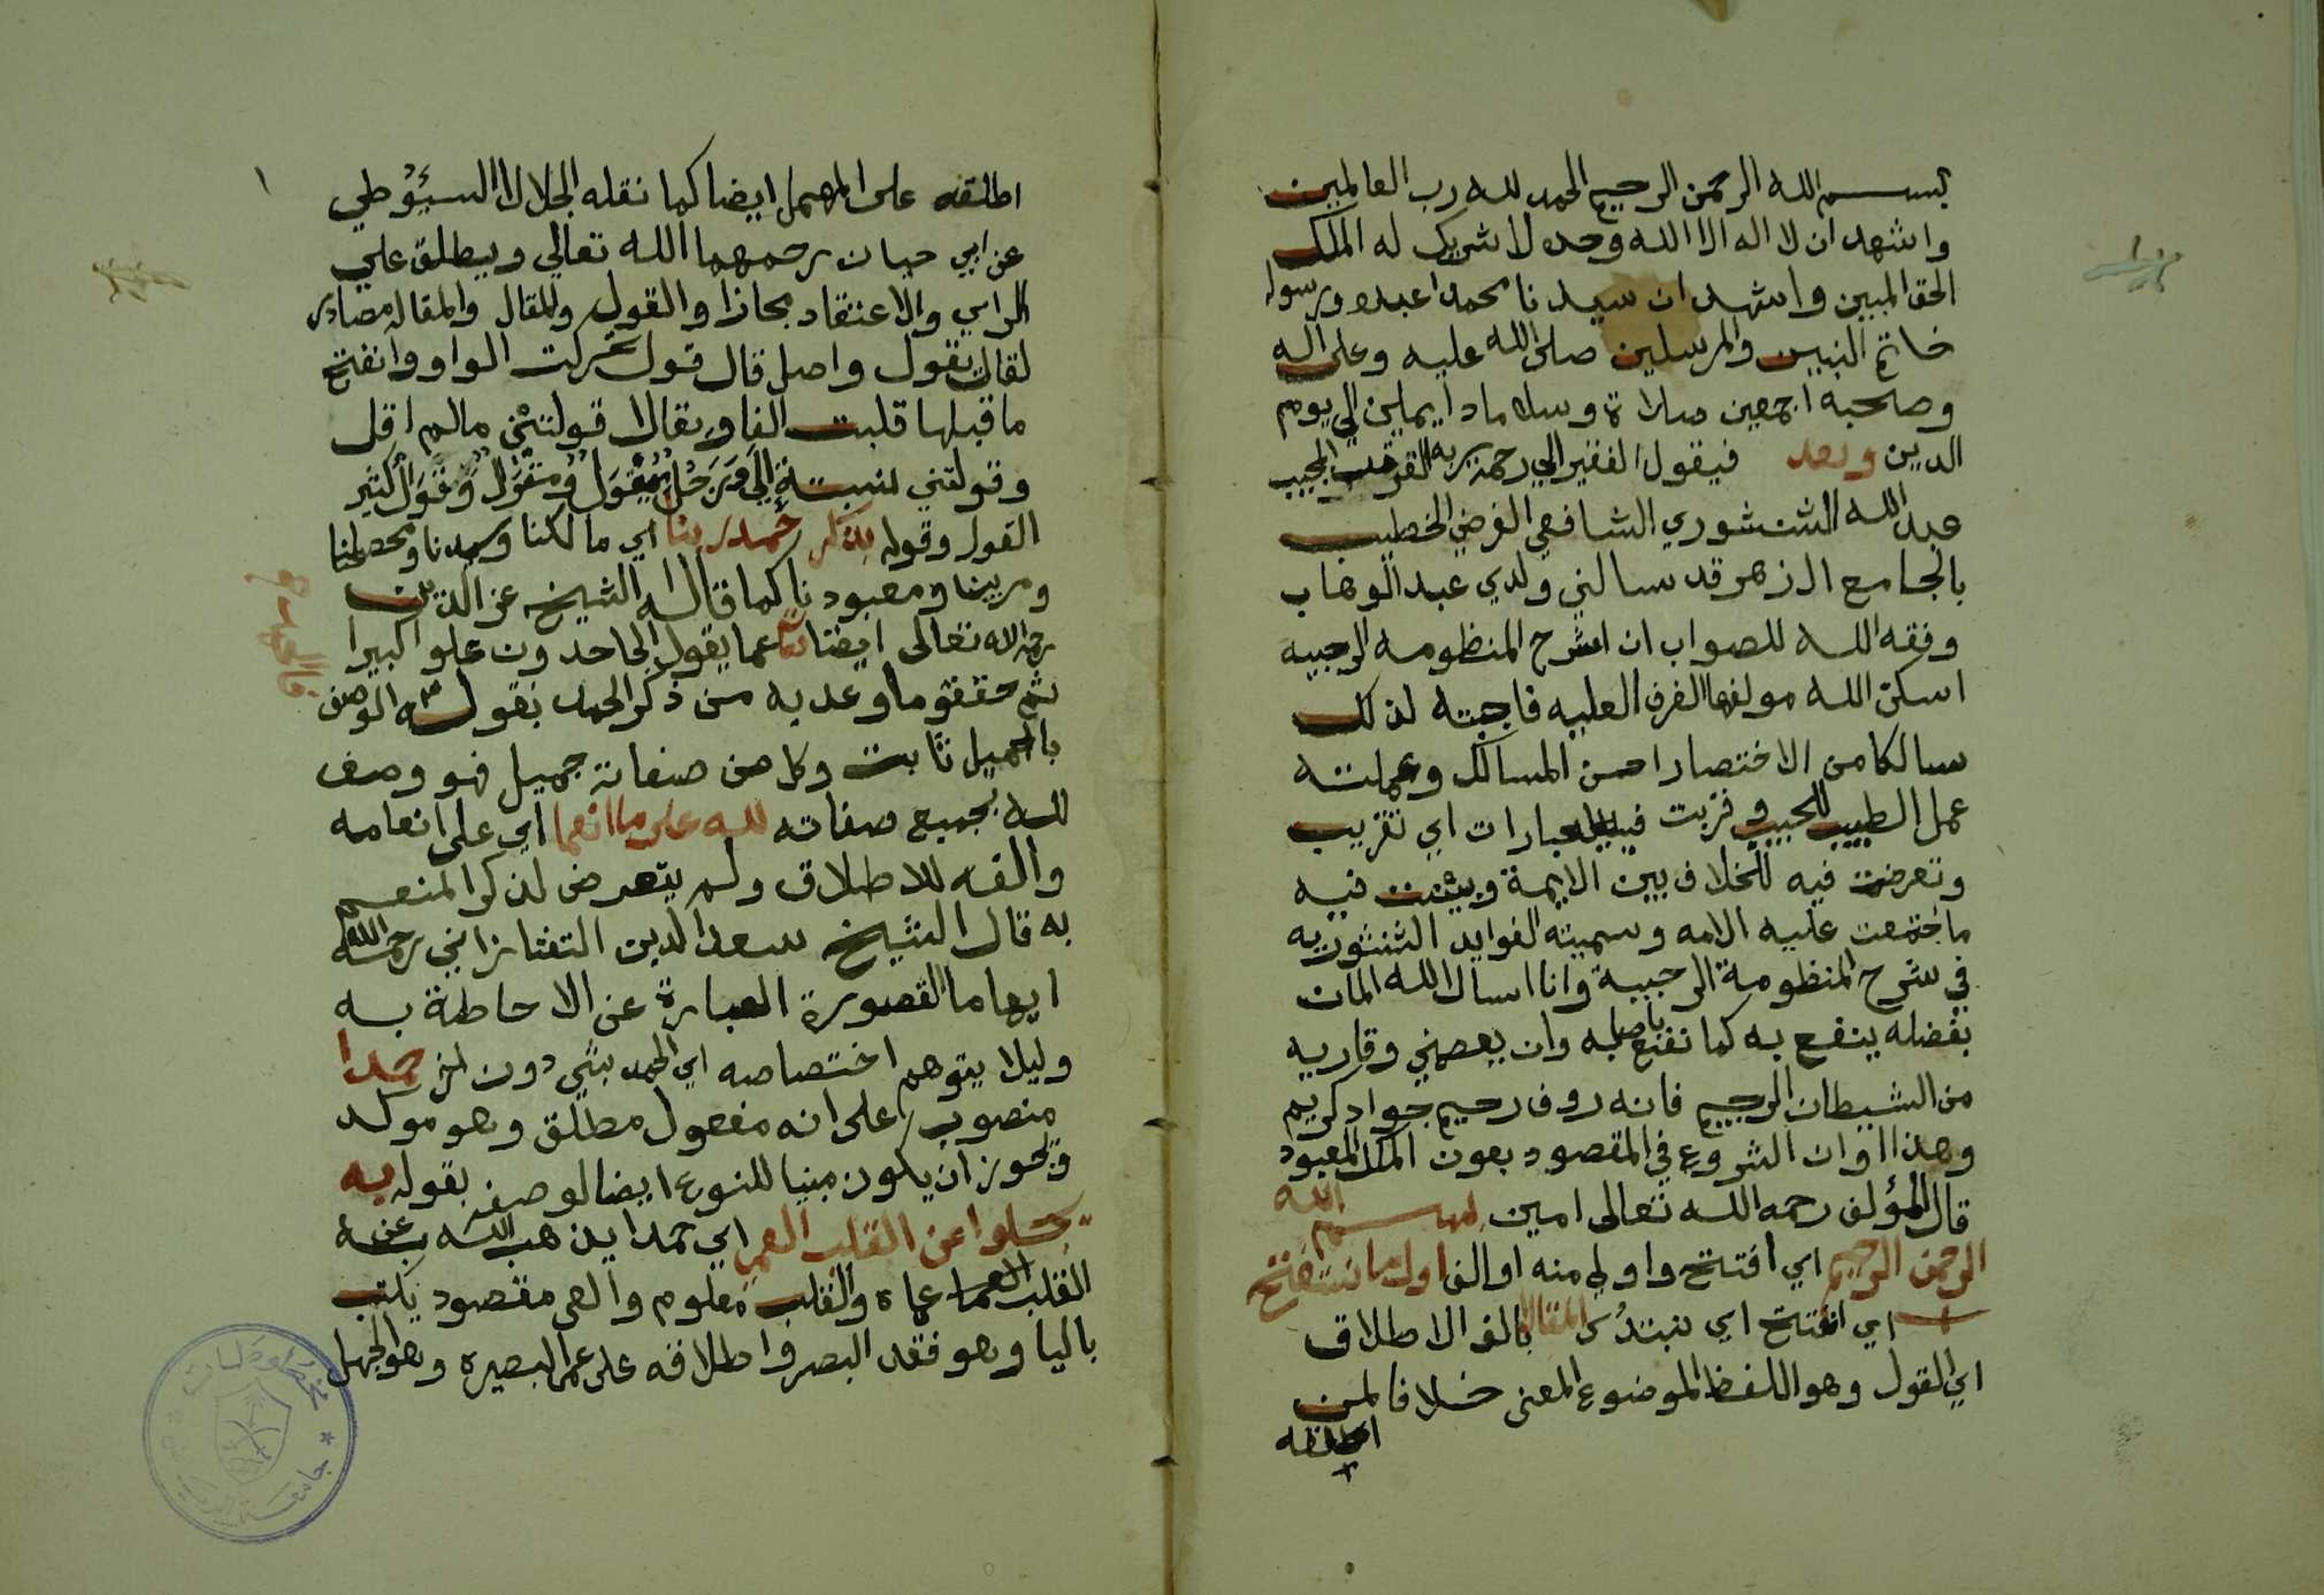 بسم الله الرحمن الرحيم الحمد لله رب العالمين
واشهد ان لا اله الا الله وحده لا شريك له الملك
الحق المبين واشهد ان سيدنا محمدا عبده ورسوله
خاتم النبيين والمرسلين صلى الله عليه وعلى اله
وصحبه اجمعين صلاة وسلاما دايمين الي يوم
الدين وبعد فيقول الفقير الي رحمة ربه القريب المجيب
عبد الله الشنشوري الشافعي الفرضي الخطيب
بالجامع الازهر قد سالني ولدي عبد الوهاب
وفقه الله للصواب ان اشرح المنظومه الرحبيه
اسكن الله مولفها الغرف العليه فاجبته لذلك
سالكا من الاختصار احسن المسالك وعملته
عمل الطبيب للحبيب وقربت فيه العبارات اي تقريب
وتعرضت فيه للخلاف بين الايمة وبينت فيه
ما اجتمعت عليه الامه وسميته الفوايد الشنشوريه
في شرح المنظومة الرحبية وانا اسال الله المان
بفضله ينفع به كما نفع باصله وان يعصمني وقاريه
من الشيطان الرجيم فانه روف رحيم جواد كريم
وهذا اوان الشروع في المقصود بعون الملك المعبود
قال المؤلف رحمه الله تعالى امين بسم الله
الرحمن الرحيم اي افتتح واولي منه اوالف اول ما نستفتح
اي نفتتح اي نبتدئ المقالا بالف الاطلاق
اي القول وهو اللفظ الموضوع المعنى خلافا لمن
اطلقه
١
اطلقه على المهمل ايضا كما نقله الجلال السيوطي
عن ابي حيان رحمهما الله تعالي ويطلق علي
الراي والاعتقاد مجازا والقول والمقال والمقاله مصادر
لقال يقول واصل قال قول تحركت الواو وانفتح
ما قبلها قلبت الفا ويقال قولتني مالم اقل
وقولتني نسبته الي ورجل مقول ومقوال وقوال كثير
القول وقوله بذكر حمد ربنا اي مالكنا وسيدنا ومصلحنا
ومربينا ومعبودنا كما قاله الشيخ عز الدين
رحمه الله تعالى ايضا تعالى عما يقول الجاحدون علوا كبيرا
ثم حقق ما وعد به من ذكر الحمد بقوله الوصف
بالجميل ثابت وكل من صفاته جميل فهو وصف
لله بجميع صفاته لله على ما انعما اي على انعامه
والفه للاطلاق ولم يتعرض لذكر المنعم
به قال الشيخ سعد الدين التفتازاني رحمه الله
ايهاما لقصورة العبارة عن الاحاطة به
وليلا يتوهم اختصاصه اي الحمد بشي دون اخر حمدا
منصوب على انه مفعول مطلق وهو موكد
ويجوز ان يكون مبينا للنوع ايضا لوصفه بقوله به
يجلوا عن القلب العمى اي حمدا يذهب الله به عن
القلب العما عماه والقلب معلوم والعمى مقصود يكتب
باليا وهو فقد البصر واطلاقه على عمى البصيرة وهو الجهل